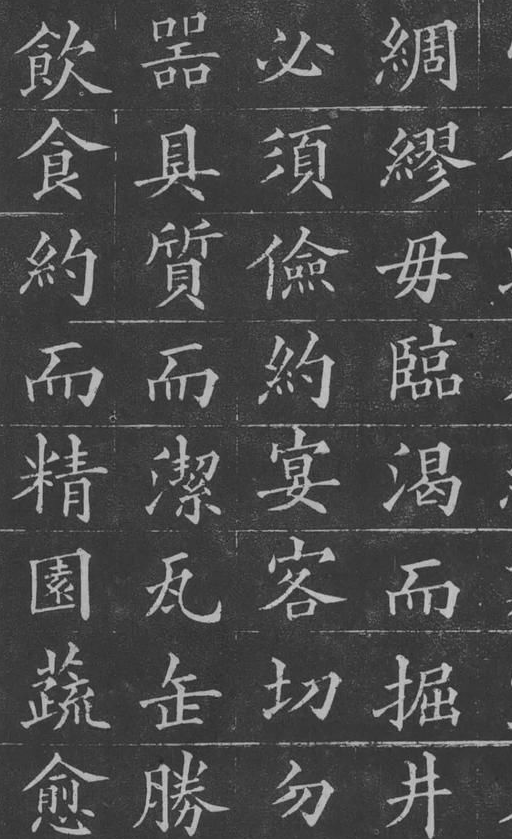 綢繆毋臨渴而掘井
必須儉約宴客切勿
器具質而潔瓦缶勝
飲食約而精園蔬愈